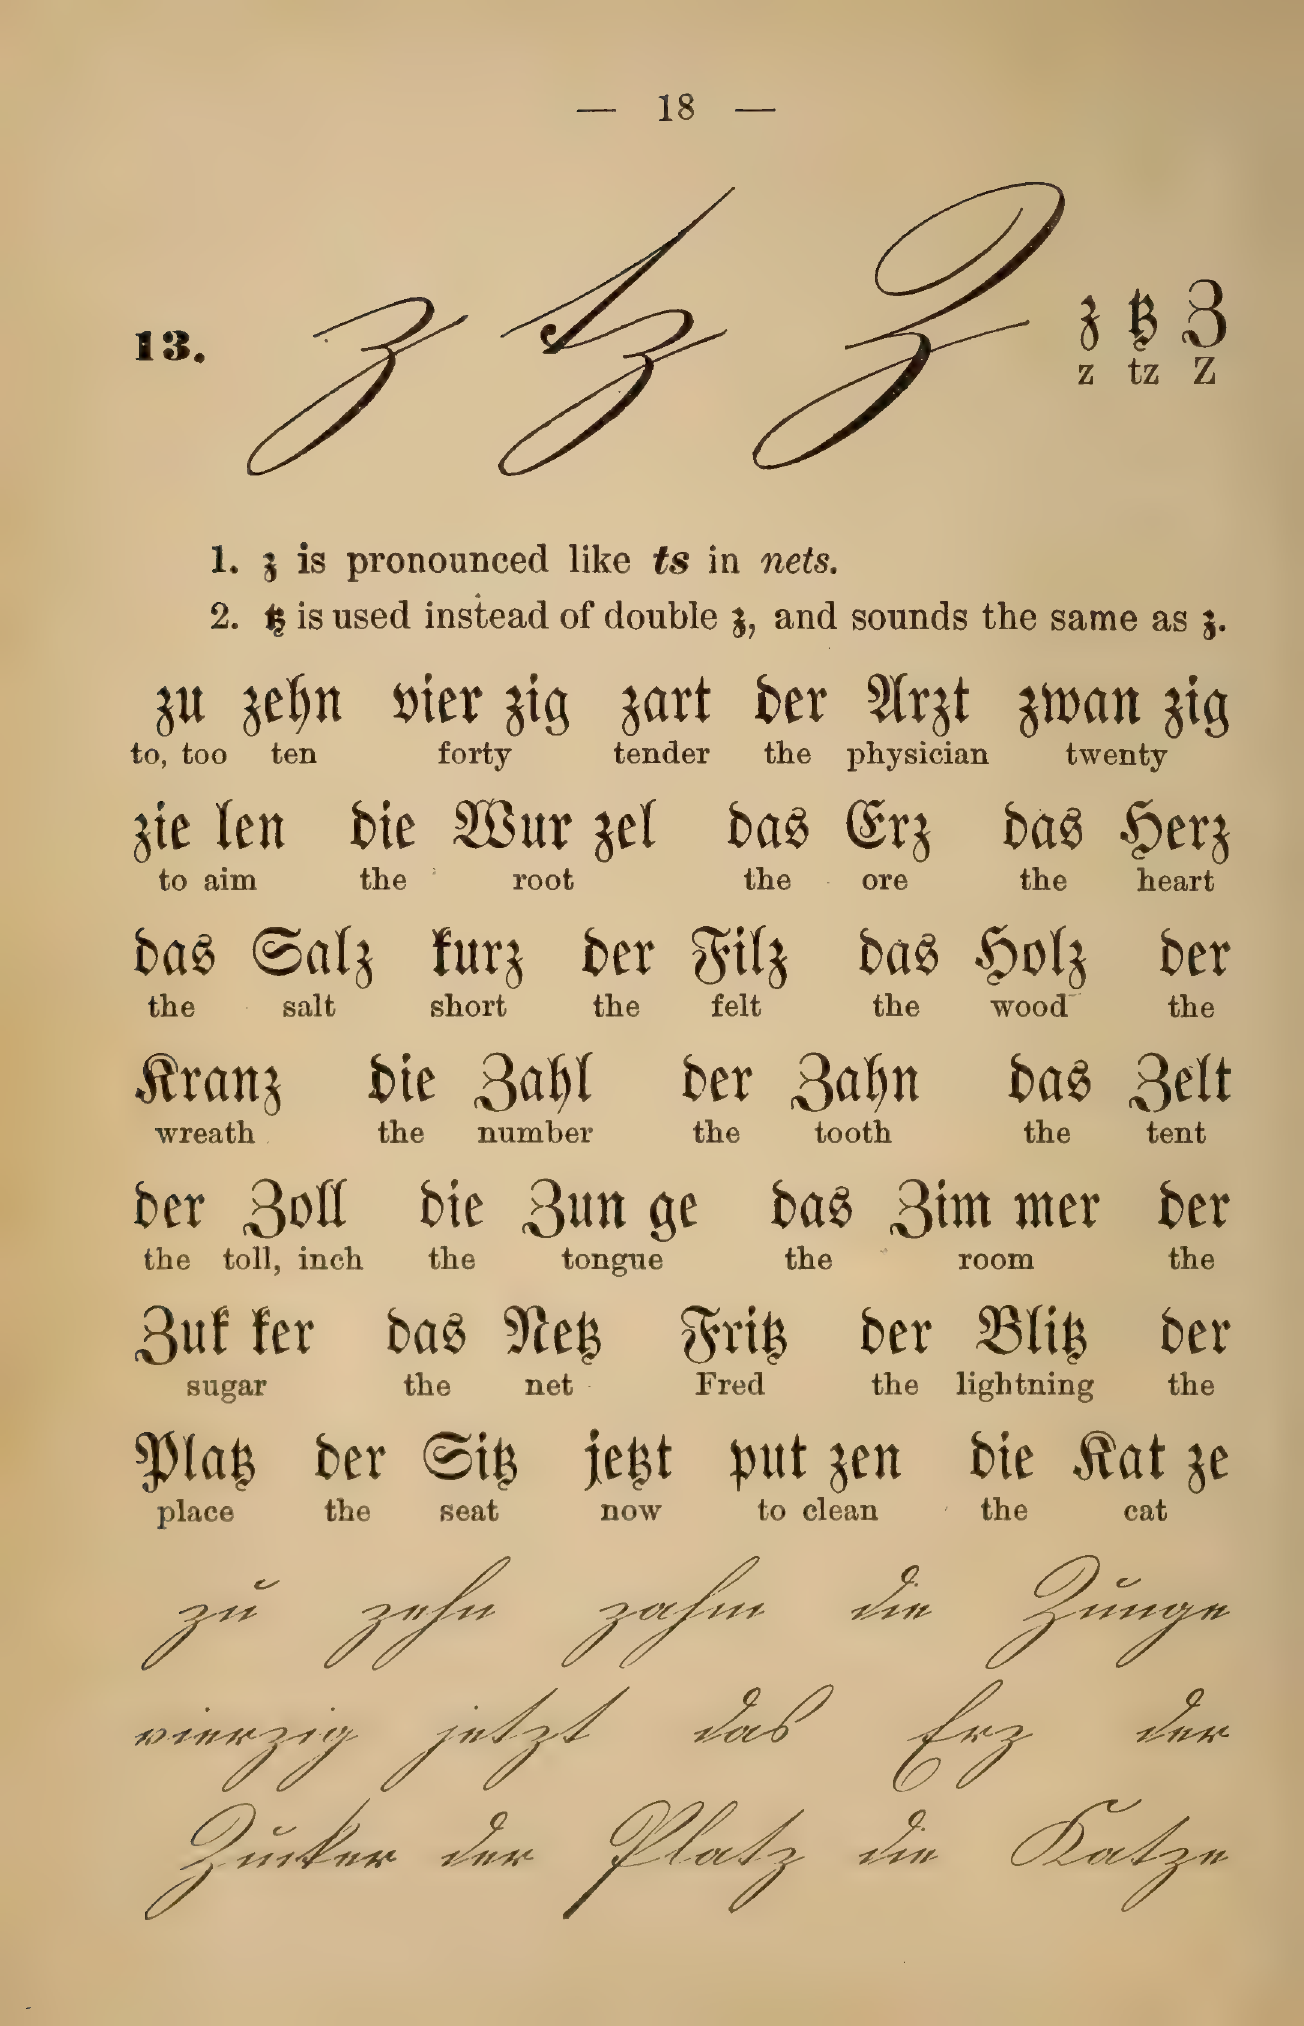 — 18 —
13. z tz Z z tz Z
z tz Z
1. z is pronounced like ts in nets.
2. tz is used instead of double z, and sounds the same as z.
zu zehn vier zig zart der Arzt zwan zig
to, too ten forty tender the physician twenty
zie len die Wur zel das Erz das Herz
to aim the root the ore the heart
das Salz kurz der Filz das Holz der
the salt short the felt the wood the
Kranz die Zahl der Zahn das Zelt
wreath the number the tooth the tent
der Zoll die Zun ge das Zim mer der
the toll, inch the tongue the room the
Zuk ker das Netz Fritz der Blitz der
sugar the net Fred the lightning the
Platz der Sitz jetzt put zen die Kat ze
place the seat now to clean the cat
zu zehn zahm die Zunge
vierzig jetzt das Erz der
Zucker der Platz die Katze